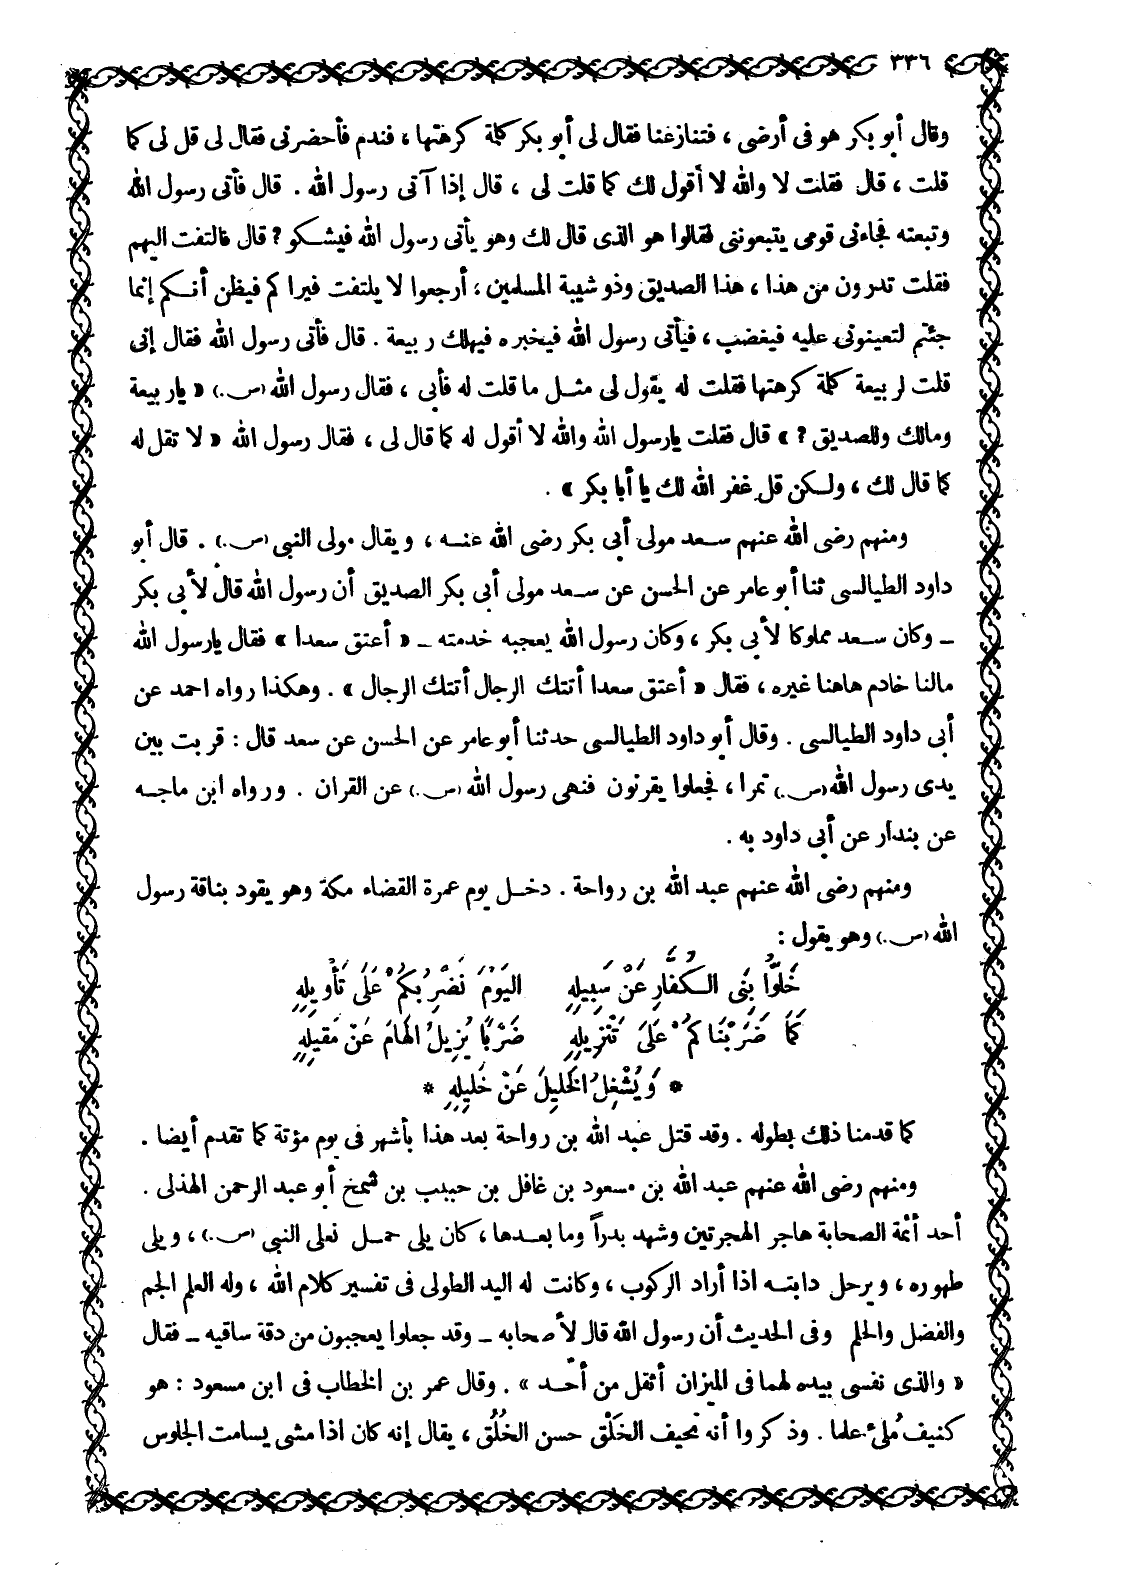 ٣٣٦
وقال أبو بكر هو فى أرضى ، فتنازعنا فقال لى أبو بكر كلمة كرهتها ، فندم فأحضرنى فقال لى قل لى كما
قلت ، قال فقلت لا والله لا أقول لك كما قلت لى ، قال إذا آتى رسول الله . قال فأتى رسول الله
وتبعته فجاءنى قومى يتبعوننى فقالوا هو الذى قال لك وهو يأتى رسول الله فيشكو ? قال فالتفت اليهم
فقلت تدرون من هذا ، هذا الصديق وذو شيبة المسلمين ، أرجعوا لا يلتفت فيراكم فيظن أنكم إنما
جئتم لتعينونى عليه فيغضب ، فيأتى رسول الله فيخبره فيهلك ربيعة . قال فأتى رسول الله فقال إنى
قلت لربيعة كلمة كرهتها فقلت له يقول لى مثل ما قلت له فأبى ، فقال رسول الله (ص.) « ياربيعة
ومالك وللصديق ? » قال فقلت يارسول الله والله لا أقول له كما قال لى ، فقال رسول الله « لا تقل له
كما قال لك ، ولكن قل غفر الله لك يا أبا بكر » .
ومنهم رضى الله عنهم سعد مولى أبى بكر رضى الله عنه ، ويقال مولى النبى (ص.) . قال أبو
داود الطيالسى ثنا أبو عامر عن الحسن عن سعد مولى أبى بكر الصديق أن رسول الله قال لأبى بكر
ـ وكان سعد مملوكا لأبى بكر ، وكان رسول الله يعجبه خدمته ـ « أعتق سعدا » فقال يارسول الله
مالنا خادم هاهنا غيره ، فقال « أعتق سعدا أتتك الرجال أتتك الرجال » . وهكذا رواه احمد عن
أبى داود الطيالسى . وقال أبو داود الطيالسى حدثنا أبو عامر عن الحسن عن سعد قال : قربت بين
يدى رسول الله (ص.) تمرا ، فجعلوا يقرنون فنهى رسول الله (ص.) عن القران . ورواه ابن ماجه
عن بندار عن أبى داود به .
ومنهم رضى الله عنهم عبد الله بن رواحة . دخل يوم عمرة القضاء مكة وهو يقود بناقة رسول
الله (ص.) وهو يقول :
خَلُّوا بَنِى الكُفَّارِ عَنْ سَبِيلِهِ اليَوْمَ نَضْرِبُكُمْ عَلَى تَأْوِيلِهِ
كَمَا ضَرَبْنَاكُمْ عَلَى تَنْزِيلِهِ ضَرْبًا يُزِيلُ الهَامَ عَنْ مَقِيلِهِ
* وَيُشْغِلُ الخَلِيلَ عَنْ خَلِيلِهِ *
كما قدمنا ذلك بطوله . وقد قتل عبد الله بن رواحة بعد هذا بأشهر فى يوم مؤتة كما تقدم أيضا .
ومنهم رضى الله عنهم عبد الله بن مسعود بن غافل بن حبيب بن شمخ أبو عبد الرحمن الهذلى .
أحد أئمة الصحابة هاجر الهجرتين وشهد بدراً وما بعدها ، كان يلى حمل نعلى النبى (ص.) ، ويلى
طهوره ، ويرحل دابته اذا أراد الركوب ، وكانت له اليد الطولى فى تفسير كلام الله ، وله العلم الجم
والفضل والحلم وفى الحديث أن رسول الله قال لأصحابه ـ وقد جعلوا يعجبون من دقة ساقيه ـ فقال
« والذى نفسى بيده لهما فى الميزان أثقل من أحد » . وقال عمر بن الخطاب فى ابن مسعود : هو
كنيف مُلئ علما . وذكروا أنه نحيف الخَلْق حسن الخُلُق ، يقال إنه كان اذا مشى يسامت الجلوس